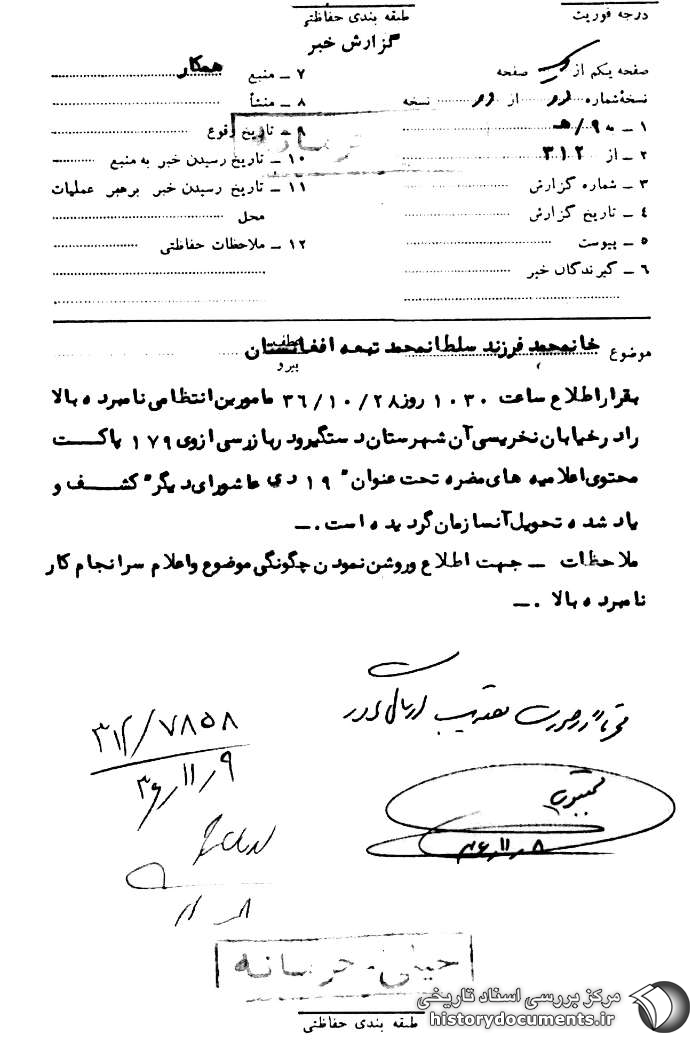 درجه فوریت
طبقه بندی حفاظتی
گزارش خبر
صفحه یکم از یک صفحه
نسخهٔ شماره از نسخه
۱ ــ به ۹/هـ
۲ ــ از ۳۱۲
۳ ــ شماره گزارش
۴ ــ تاریخ گزارش
۵ ــ پیوست
۶ ــ گیرندگان خبر
۷ ــ منبع همکار
۸ ــ منشأ
۹ ــ تاریخ وقوع
۱۰ ــ تاریخ رسیدن خبر به منبع
۱۱ ــ تاریخ رسیدن خبر برهبر عملیات
محل
۱۲ ــ ملاحظات حفاظتی
موضوع خانمحمد فرزند سلطانمحمد تبعه افغانستان
عطف
پیرو
بقراراطلاع ساعت ۱۰۳۰ روز ۳۶/۱۰/۲۸ مامورین انتظامی نامبرده بالا
رادرخیابان نخریسی آن شهرستان دستگیرودربازرسی ازوی ۱۷۹ پاکت
محتوی اعلامیه های مضره تحت عنوان " ۱۹ دی عاشورای دیگر" کشف و
یاد شده تحویل آنسازمان گردیده است .ــ
ملاحظات ــ جهت اطلاع وروشن نمودن چگونگی موضوع واعلام سرانجام کار
نامبرده بالا .ــ
۳۱۲/۷۸۵۸
۳۶٫۱۱٫۹
۳۶٫۱۱٫۸
خیلی محرمانه
طبقه بندی حفاظتی
مرکز بررسی اسناد تاریخی
historydocuments.ir